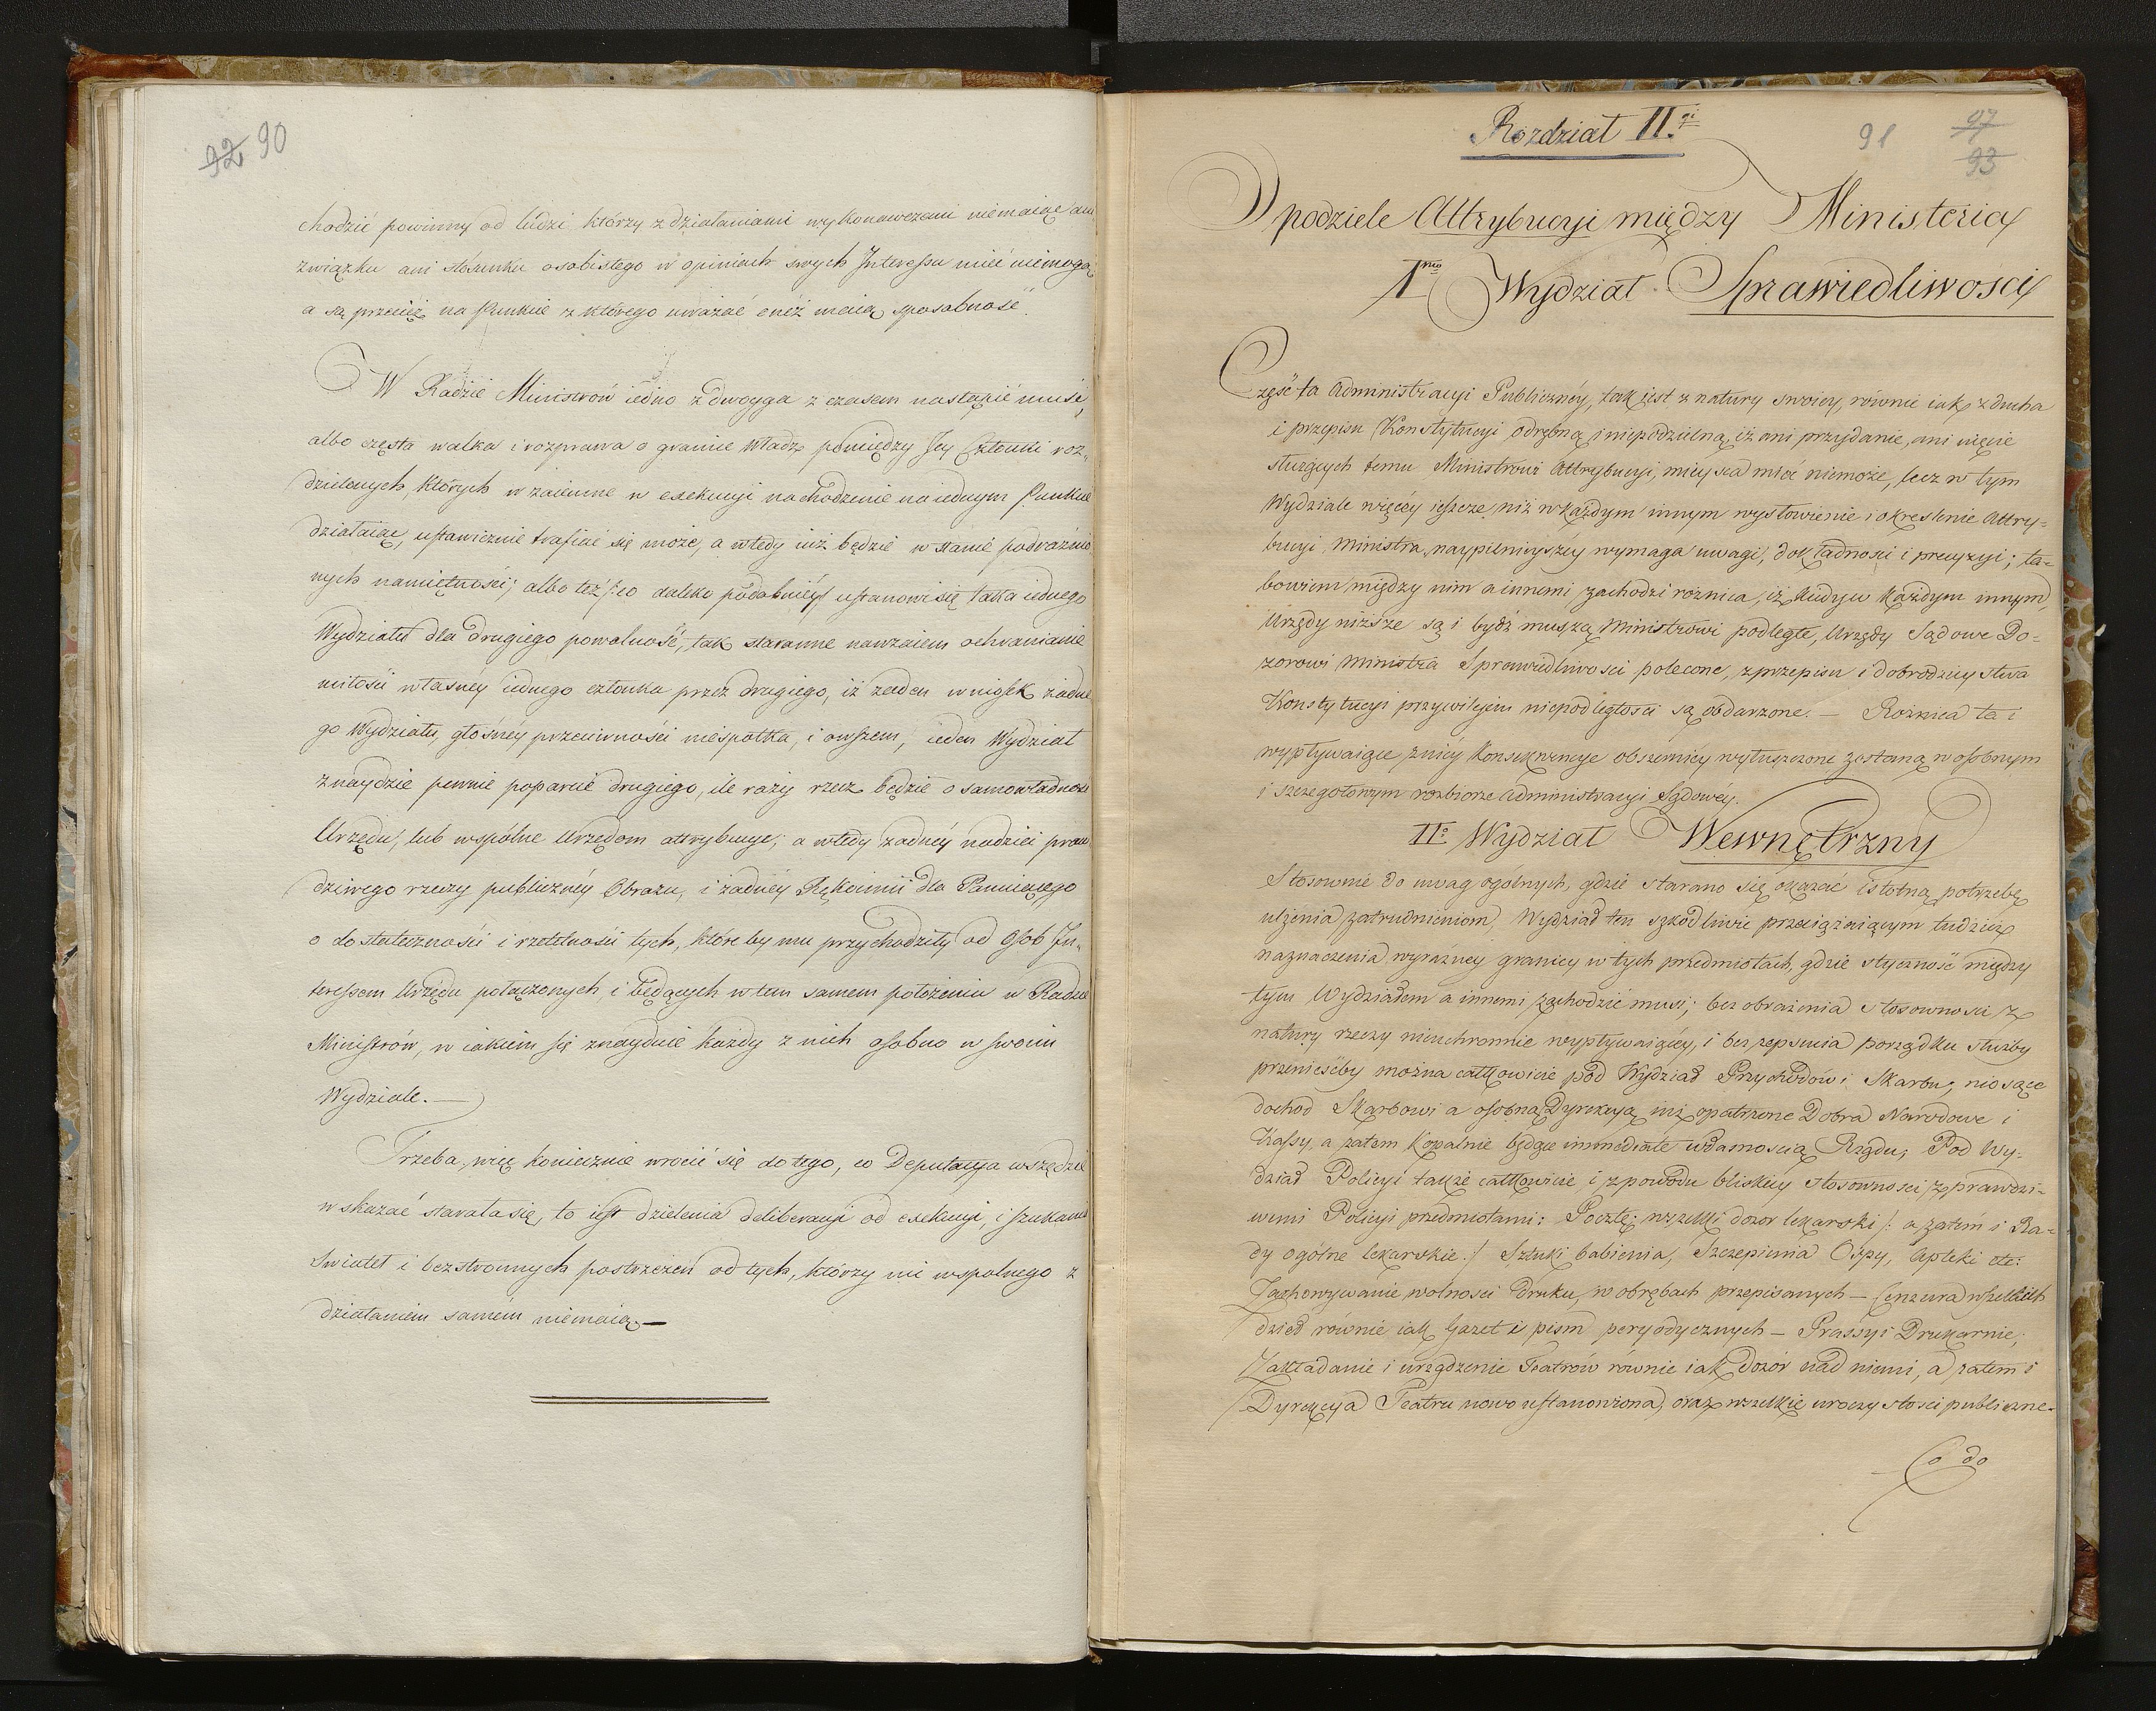 92 90
chodzić powinny od ludzi którzy z działaniami wykonawczemi niemaiąc ani
związku ani stósunku osobistego w opiniach swych Interessu mieć niemogą
a są przecież na Punkcie z którego uważać onéż maią sposobność.
W Radzie Ministrów iedno z dwoyga z czasem nastąpić musi,
albo częsta walka i rozprawa o granice władz pomiędzy Jey Członki roz-
dzielonych, których wzaiemne w exekucyi nachodzenie na iednym Punkcie
działaiąc, ustawicznie trafiać się może, a wtedy iuż będzie w stanie podraźnio
nych namiętności; albo też /: co daleko podobniéy / ustanowi się taka iednego
Wydziału dla drugiego powolność, tak staranne nawzaiem ochranianie
miłości własnéy iednego członka przez drugiego, iż żaden wniosek żadne
go Wydziału, głośnéy przeciwności niespotka, i owszem, ieden Wydział
znaydzie pewnie poparcie drugiego, ile razy rzecz będzie o samowładność
Urzędu, lub wspólne Urzędom attrybucye; a wtedy żadnéy nadziei praw
dziwego rzeczy publicznéy Obrazu, i żadnéy Rękoimii dla Panuiącego
o dostateczności i rzetelności tych, które by mu przychodziły od Osob In-
teressem Urzędu połączonych i będących w tem samem położeniu w Radzie
Ministrów, w iakiem się znayduie każdy z nich osobno w swoim
Wydziale.—
Trzeba więc koniecznie wrócić się do tego, co Deputacya wszędzie
wskazać starała się, to iest dzielenia deliberacyi od exekucyi, i szukania
Swiateł i bezstronnych postrzeżeń od tych, którzy nic wspolnego z
działaniem samém niemaią.—
Rozdział II.gi
91 97
93
O podziele Attrybucyi między Ministeria
1mo Wydział Sprawiedliwości
Część ta Administracyi Publicznéy, tak iest z natury swoiey, równie iak z ducha
i przepisu Konstytucyi odrębną i niepodzielną, iż ani przydanie, ani uięcie
służących temu Ministrowi Attrybucyi, mieysca mieć niemoże, lecz w tym
Wydziale więcéy ieszcze niż w każdym innym wysłowienie i okreslenie Attry-
bucyi Ministra, naypilnieyszéy wymaga uwagi, dokładności i precyzyi; ta-
bowiem między nim a innemi zachodzi róznica, iż kiedy w każdym innym,
Urzędy niższe są i bydź muszą Ministrowi podległe, Urzędy Sądowe Do-
zorowi Ministra Sprawiedliwości polecone, z przepisu i dobrodzieystwa
Konstytucyi przywileiem niepodległości są obdarzone.— Roznica ta i
wypływaiące z niéy Konsekwencye obszerniey wyłuszczone zostaną w osobnym
i szczegołowym rozbiorze Administracyi Sądowéy.
IIo Wydział Wewnętrzny
Stosownie do uwag ogólnych, gdzie starano się okazać istotną potrzebę
ulżenia zatrudnieniom, Wydział ten szkodliwie przeciążaiącym tudzież
naznaczenia wyraźney granicy w tych przedmiotach, gdzie styczność między
tym Wydziałem a innemi zachodzić musi; bez obrażenia stosowności z
natury rzeczy nieuchronnie wypływaiącéy, i bez zepsucia porządku służby
przenieśćby można całkowicie pod Wydział Przychodów i Skarbu, niosące
dochod Skarbowi a osobną Dyrekcyą iuż opatrzone Dobra Narodowe i
Lassy, a zatem Kopalnie będące immediate własnością Rządu; Pod Wy-
dział Policyi także całkowicie i z powodu bliskiey stosowności z prawdzi-
wemi Policyi przedmiotami: Pocztę; wszelki dozor lekarski /: a zatem i Ra-
dy ogólne lekarskie:/ Sztuki babienia, Szczepienia Ospy, Apteki etc:
Zachowywanie wolnosci druku, w obrębach przepisanych — Cenzura wszelkich
dzieł równie iak Gazet i pism peryodycznych — Prassy i Drukarnie;
Zakładanie i urządzenie Teatrów równie iak dozór nad niemi, a zatem i
Dyrekcya Teatru nowo ustanowiona, oraz wszelkie uroczystości publiczne.
Co do